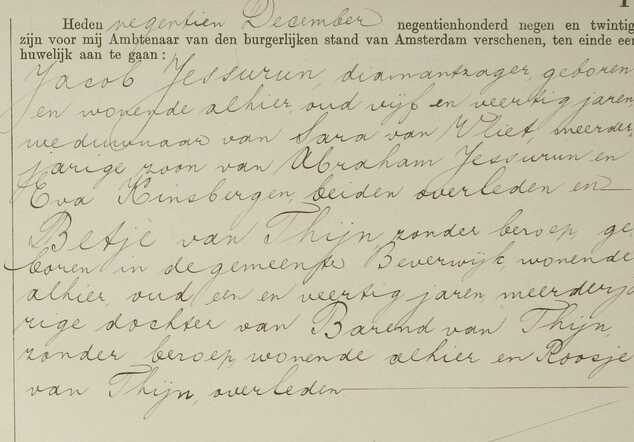 Heden negentien December negentienhonderd negen en twintig
zijn voor mij Ambtenaar van den burgerlijken stand van Amsterdam verschenen, ten einde een
huwelijk aan te gaan:
Jacob Jessurun, diamantzager, geboren
en wonende alhier, oud vijf en veertig jaren
weduwnaar van Sara van Vliet, meerder-
jarige zoon van Abraham Jessurun en
Eva Kinsbergen, beiden overleden en
Betje van Thijn, zonder beroep, ge-
boren in de gemeente Beverwijk, wonende
alhier, oud een en veertig jaren, meerderja
rige dochter van Barend van Thijn,
zonder beroep, wonende alhier en Roosje
van Thijn, overleden